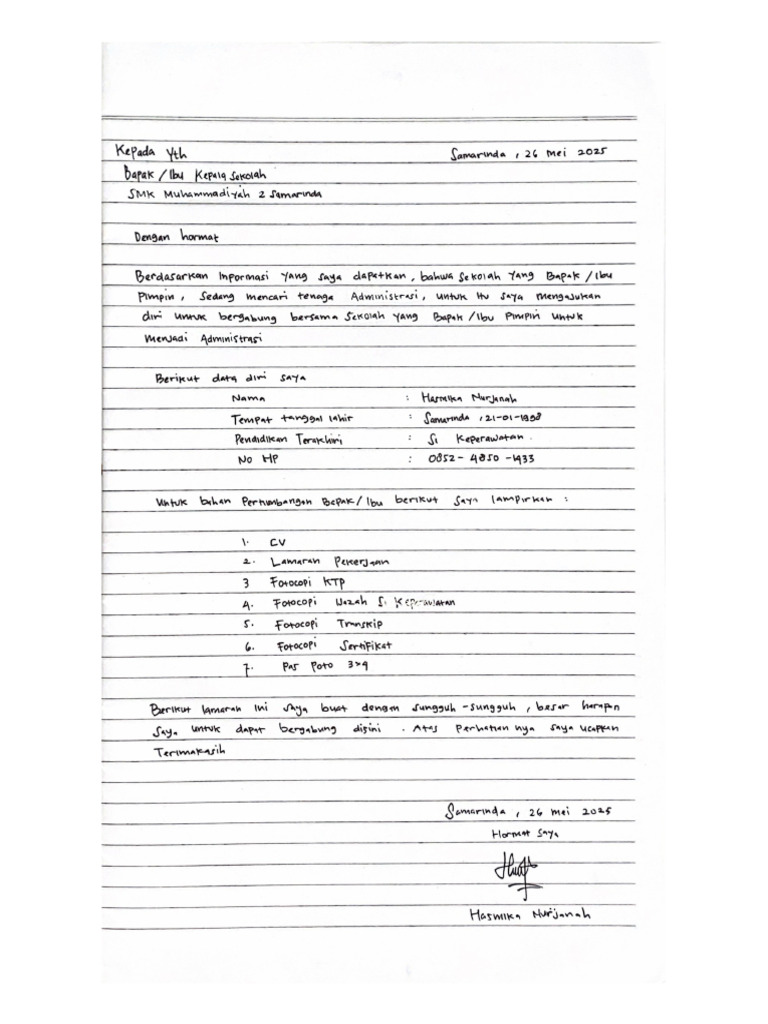 Kepada Yth
Samarinda, 26 Mei 2025
Bapak/Ibu Kepala Sekolah
SMK Muhammadiyah 2 Samarinda
Dengan hormat
Berdasarkan Inpormasi Yang saya dapatkan, bahwa Sekolah Yang Bapak/Ibu
Pimpin, Sedang mencari tenaga Administrasi, untuk Itu saya mengajukan
diri untuk bergabung bersama Sekolah Yang Bapak/Ibu Pimpin untuk
Menjadi Administrasi
Berikut data diri saya
Nama : Hasmika Nurjanah
Tempat tanggal lahir : Samarinda, 21-01-1998
Pendidikan Terakhiri : S1 Keperawatan.
No HP : 0852-4850-1433
Untuk bahan Pertimbangan Bapak/Ibu berikut saya lampirkan :
1. CV
2. Lamaran Pekerjaan
3 Fotocopi KTP
4. Fotocopi Ijazah S1 Keperawatan
5. Fotocopi Transkip
6. Fotocopi Sertifikat
7. Pas Poto 3x4
Berikut lamaran Ini Saya buat dengan sungguh-sungguh, besar harapan
Saya untuk dapat bergabung disini. Atas Perhatian nya saya ucapkan
Terimakasih
Samarinda, 26 Mei 2025
Hormat Saya
Hasmika Nurjanah